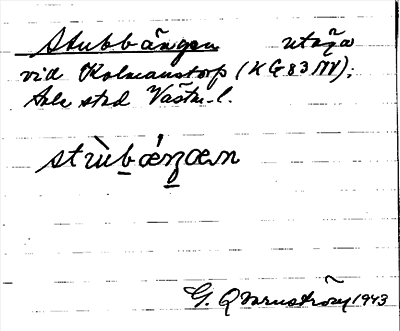 Stubbängen utäga
vid Kolmanstorp (KG83NV);
Arle sbd Västm. l.
strùbǽŋæn
G. Qvarnström 1943